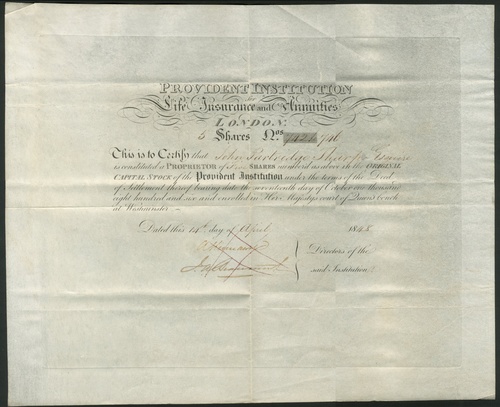 PROVIDENT INSTITUTION
for
Life Insurance and Annuities
LONDON.
5 Shares Nos 742 to 746
This is to Certify that John Partridge
is constituted a PROPRIETOR of five SHARES numbered as above in the ORIGINAL
CAPITAL STOCK of the Provident Institution under the terms of the Deed
of Settlement thereof bearing date the seventeenth day of October one thousand
eight hundred and six and enrolled in Her Majestys court of Queens Bench
at Westminster
Dated this 14th day of April 184
Directors of the
said Institution